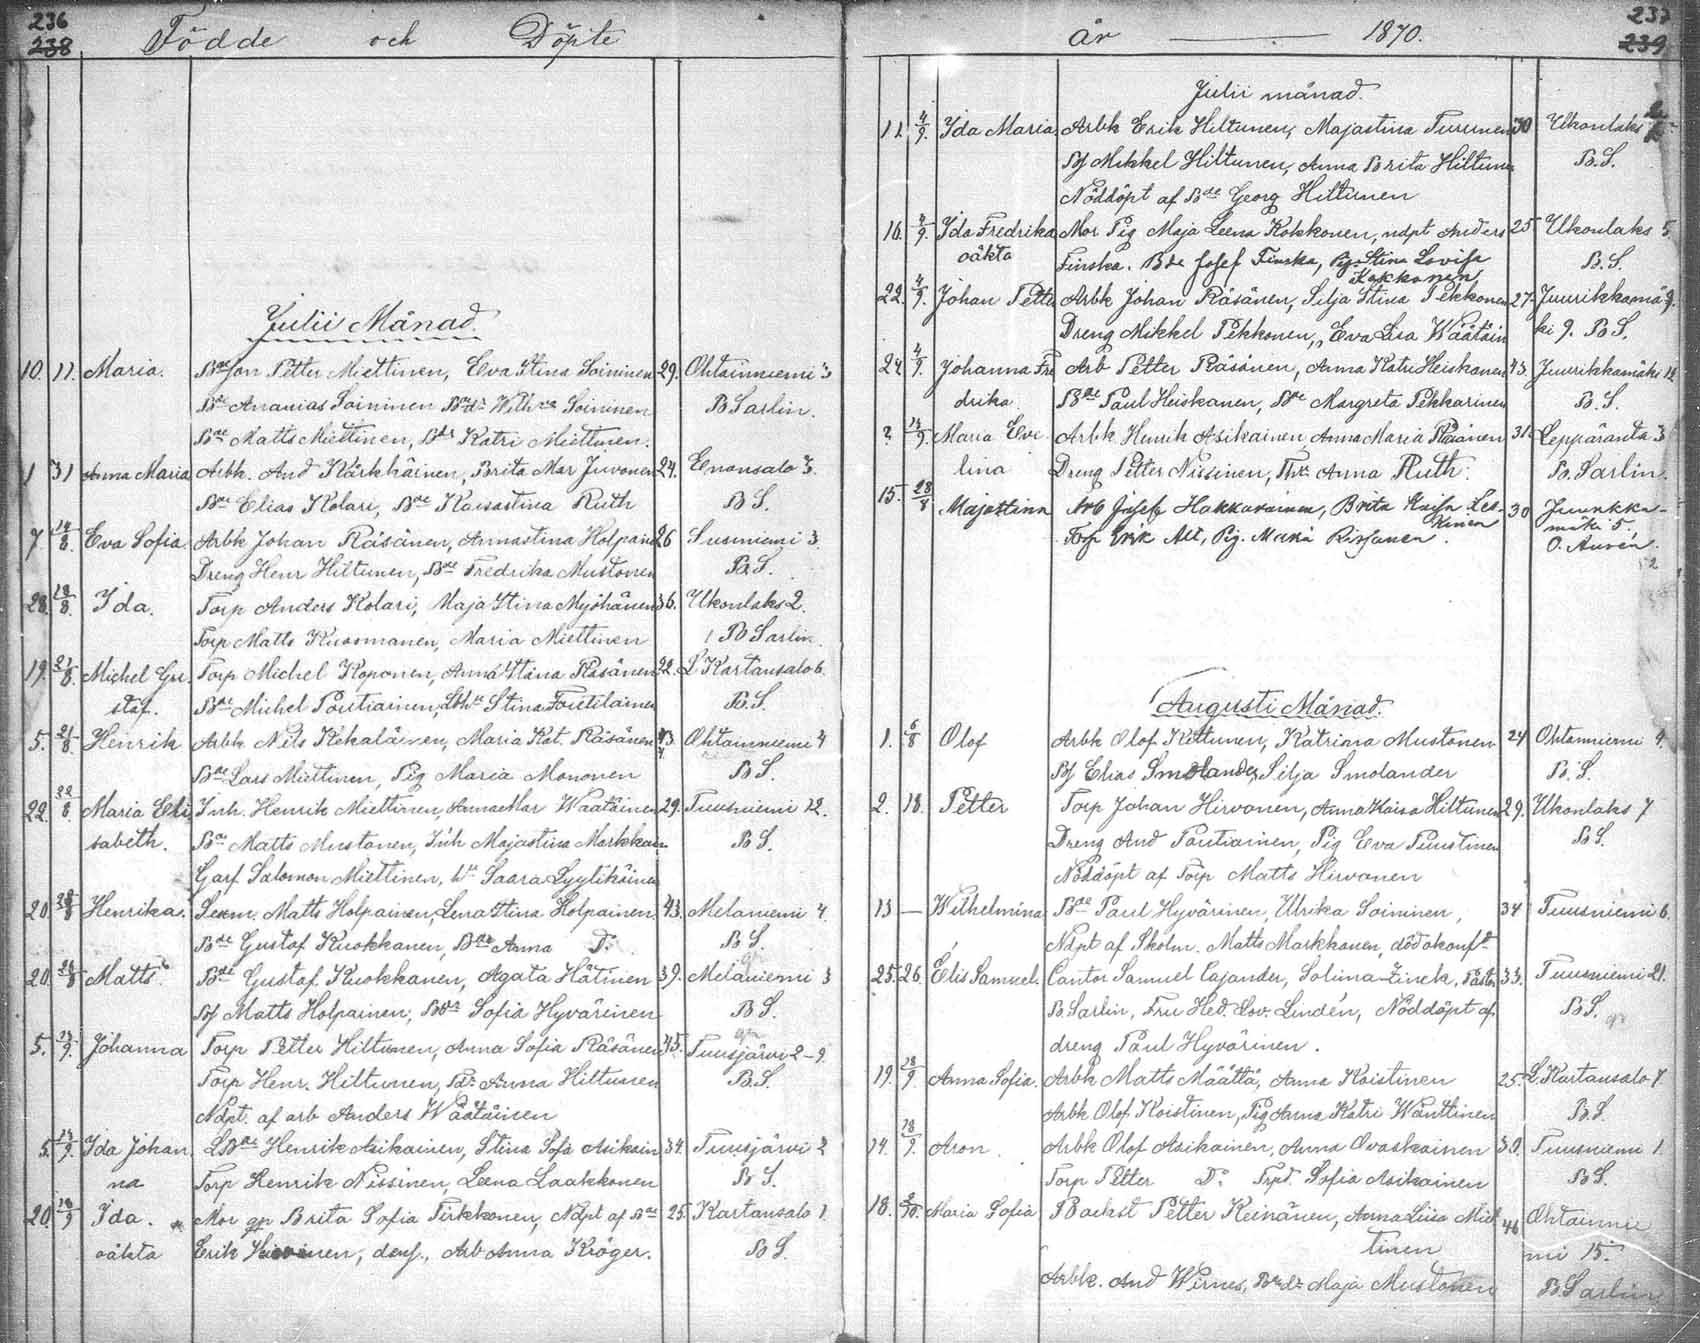 236
238
Födde och Döpte
Julii Månad.
10. 11. Maria. Bde Jon Petter Miettinen, Eva Stina Soininen 29. Ohtainniemi 3
Bde Ananias Soininen Soininen B Sarlin.
Bde Matts Miettinen, Katri Miettinen.
1 31 Anna Maria Arbk. And Kärkkäinen, Brita Mar Juvonen 24. Enonsalo 3.
Bde Elias Kolari, Bde Kaisastina Ruth B S.
7. 14/8. Eva Sofia Arbk Johan Räsänen, Annastina Holpain 26 Susiniemi 3.
Dreng Henr Hiltunen, Bde Fredrika Mustonen B.S.
28. Ida. Torp Anders Kolari, Maja Stina Myöhänen 36. Ukonlaks 2.
Torp Matts Kuosmanen, Maria Miettinen B Sarlin.
19. 21/8. Michel Gu- Torp Michel Koponen, Anna Stina Räsänen 22. L Kartansalo 6
staf. Bde Michel Poutiainen, Stina B.S.
5. 21/8 Henrik Arbk Nils Kekäläinen, Maria Kat. Räsänen 43 Ohtainniemi 4
Bde Lars Miettinen, Pig Maria Mononen B S.
22. 22/8 Maria Eli Inh. Henrik Miettinen, Annamar Wäätäinen 29. Tuusniemi 12.
sabeth. Bde Matts Mustonen, Inh Majastina Markkain B S.
Garf Salomon Miettinen, Saara Lyytikäinen
20. 28/8 Henrika. Matts Holpainen, Lena Stina Holpainen 43. Melaniemi 4.
Bde Gustaf Kuokkanen, Bde Anna Do B S.
20. 28/8 Matts. Bde Gustaf Kuokkanen, Agata Hätinen 39. Melaniemi 3
Bf Matts Holpainen, Sofia Hyvärinen B S.
5. 13/9. Johanna Torp Petter Hiltunen, Anna Sofia Räsänen 45. Tuusjärvi 2-9.
Torp Henr. Hiltunen, Anna Hiltunen B.S.
Ndpt. af arb Anders Wäätäinen
5. 13/9. Ida Johan LBde Henrik Asikainen, Stina Sofa Asikain 34. Tuusjärvi 2
na Torp Henrik Nissinen, Leena Laakkonen B S.
20. 18/9 Ida. Mor gp Brita Sofia Tirkkonen, Ndpt af Bde 25. Kartansalo 1.
oäkta Erik dens., Arb Anna Kröger. B S.
237
239
år 1870.
Julii månad.
11. 4/9. Ida Maria Arbk Erik Hiltunen, Majastina Turunen 30 Ukonlaks
Bf Mikkel Hiltunen, Anna Brita Hiltunen B.S.
Nöddöpt af Bde Georg Hiltunen
16. 4/9. Ida Fredrika Mor Pig Maja Leena Kokkonen, ndpt Anders 25 Ukonlaks 5.
oäkta Finska. Bde Josef Finska, Pig Stina Lovisa B.S.
Kokkonen
22. 4/9. Johan Petter Arbk Johan Räsänen, Silja Stina Pekkonen 27. Juurikkamä-
Dreng Mikkel Pekkonen, Eva Lisa Wäätäin ki 9. B S.
24. 4/9. Johanna Fre Arb Petter Räsänen, Anna Katri Heiskanen 43. Juurikkamäki 12
drika Bde Paul Heiskanen, Bde Margreta Pekkarinen B.S.
2. Maria Eve- Arbk Henrik Asikainen, Anna Maria Räsänen 31. Leppäranta 3
lina Dreng Petter Nissinen, Anna Ruth. B. Sarlin.
15. 28/8 Majastina Arb Josef Hakkarainen, Brita Kaisa Les- 30 Juurikka-
kinen mäki 5.
Torp Erik Alt, Pig. Maria Rissanen. O. Aurén.
Augusti Månad.
1. 6/8 Olof Arbk Olof Kettunen, Katriina Mustonen 24 Ohtainniemi 9.
Bf Elias Smolander, Silja Smolander B. S.
2. 18. Petter Torp Johan Hirvonen, Anna Kaisa Hiltunen 29. Ukonlaks 7
Dreng And Poutiainen, Pig Eva Puustinen B S.
Nöddöpt af Torp Matts Hirvonen
13 — Wilhelmina Bde Paul Hyvärinen, Ulrika Soininen, 34 Tuusniemi 6.
Ndpt af Skolm. Matts Markkanen, död okonf.
25. 26. Elis Samuel. Cantor Samuel Cajander, Solima Zinck, Pastor 33. Tuusniemi 21.
B. Sarlin, Fru Hed. Lov. Lindén, Nöddöpt af B S.
dreng Paul Hyvärinen.
19. 18/9 Anna Sofia. Arbk Matts Määttä, Anna Koistinen 25. L. Kartansalo 7.
Arbk Olof Koistinen, Pig Anna Katri Wänttinen B.S.
14. 18/9. Aron. Arbk Olof Asikainen, Anna Ovaskainen 30. Tuusniemi 1.
Torp Petter Do Sofia Asikainen B S.
18. 2/10. Maria Sofia Backst Petter Keinänen, Anna Liisa Miet 46 Ohtainnie
tinen mi 15.
Arbk. And Wirnes, Maja Mustonen B. Sarlin